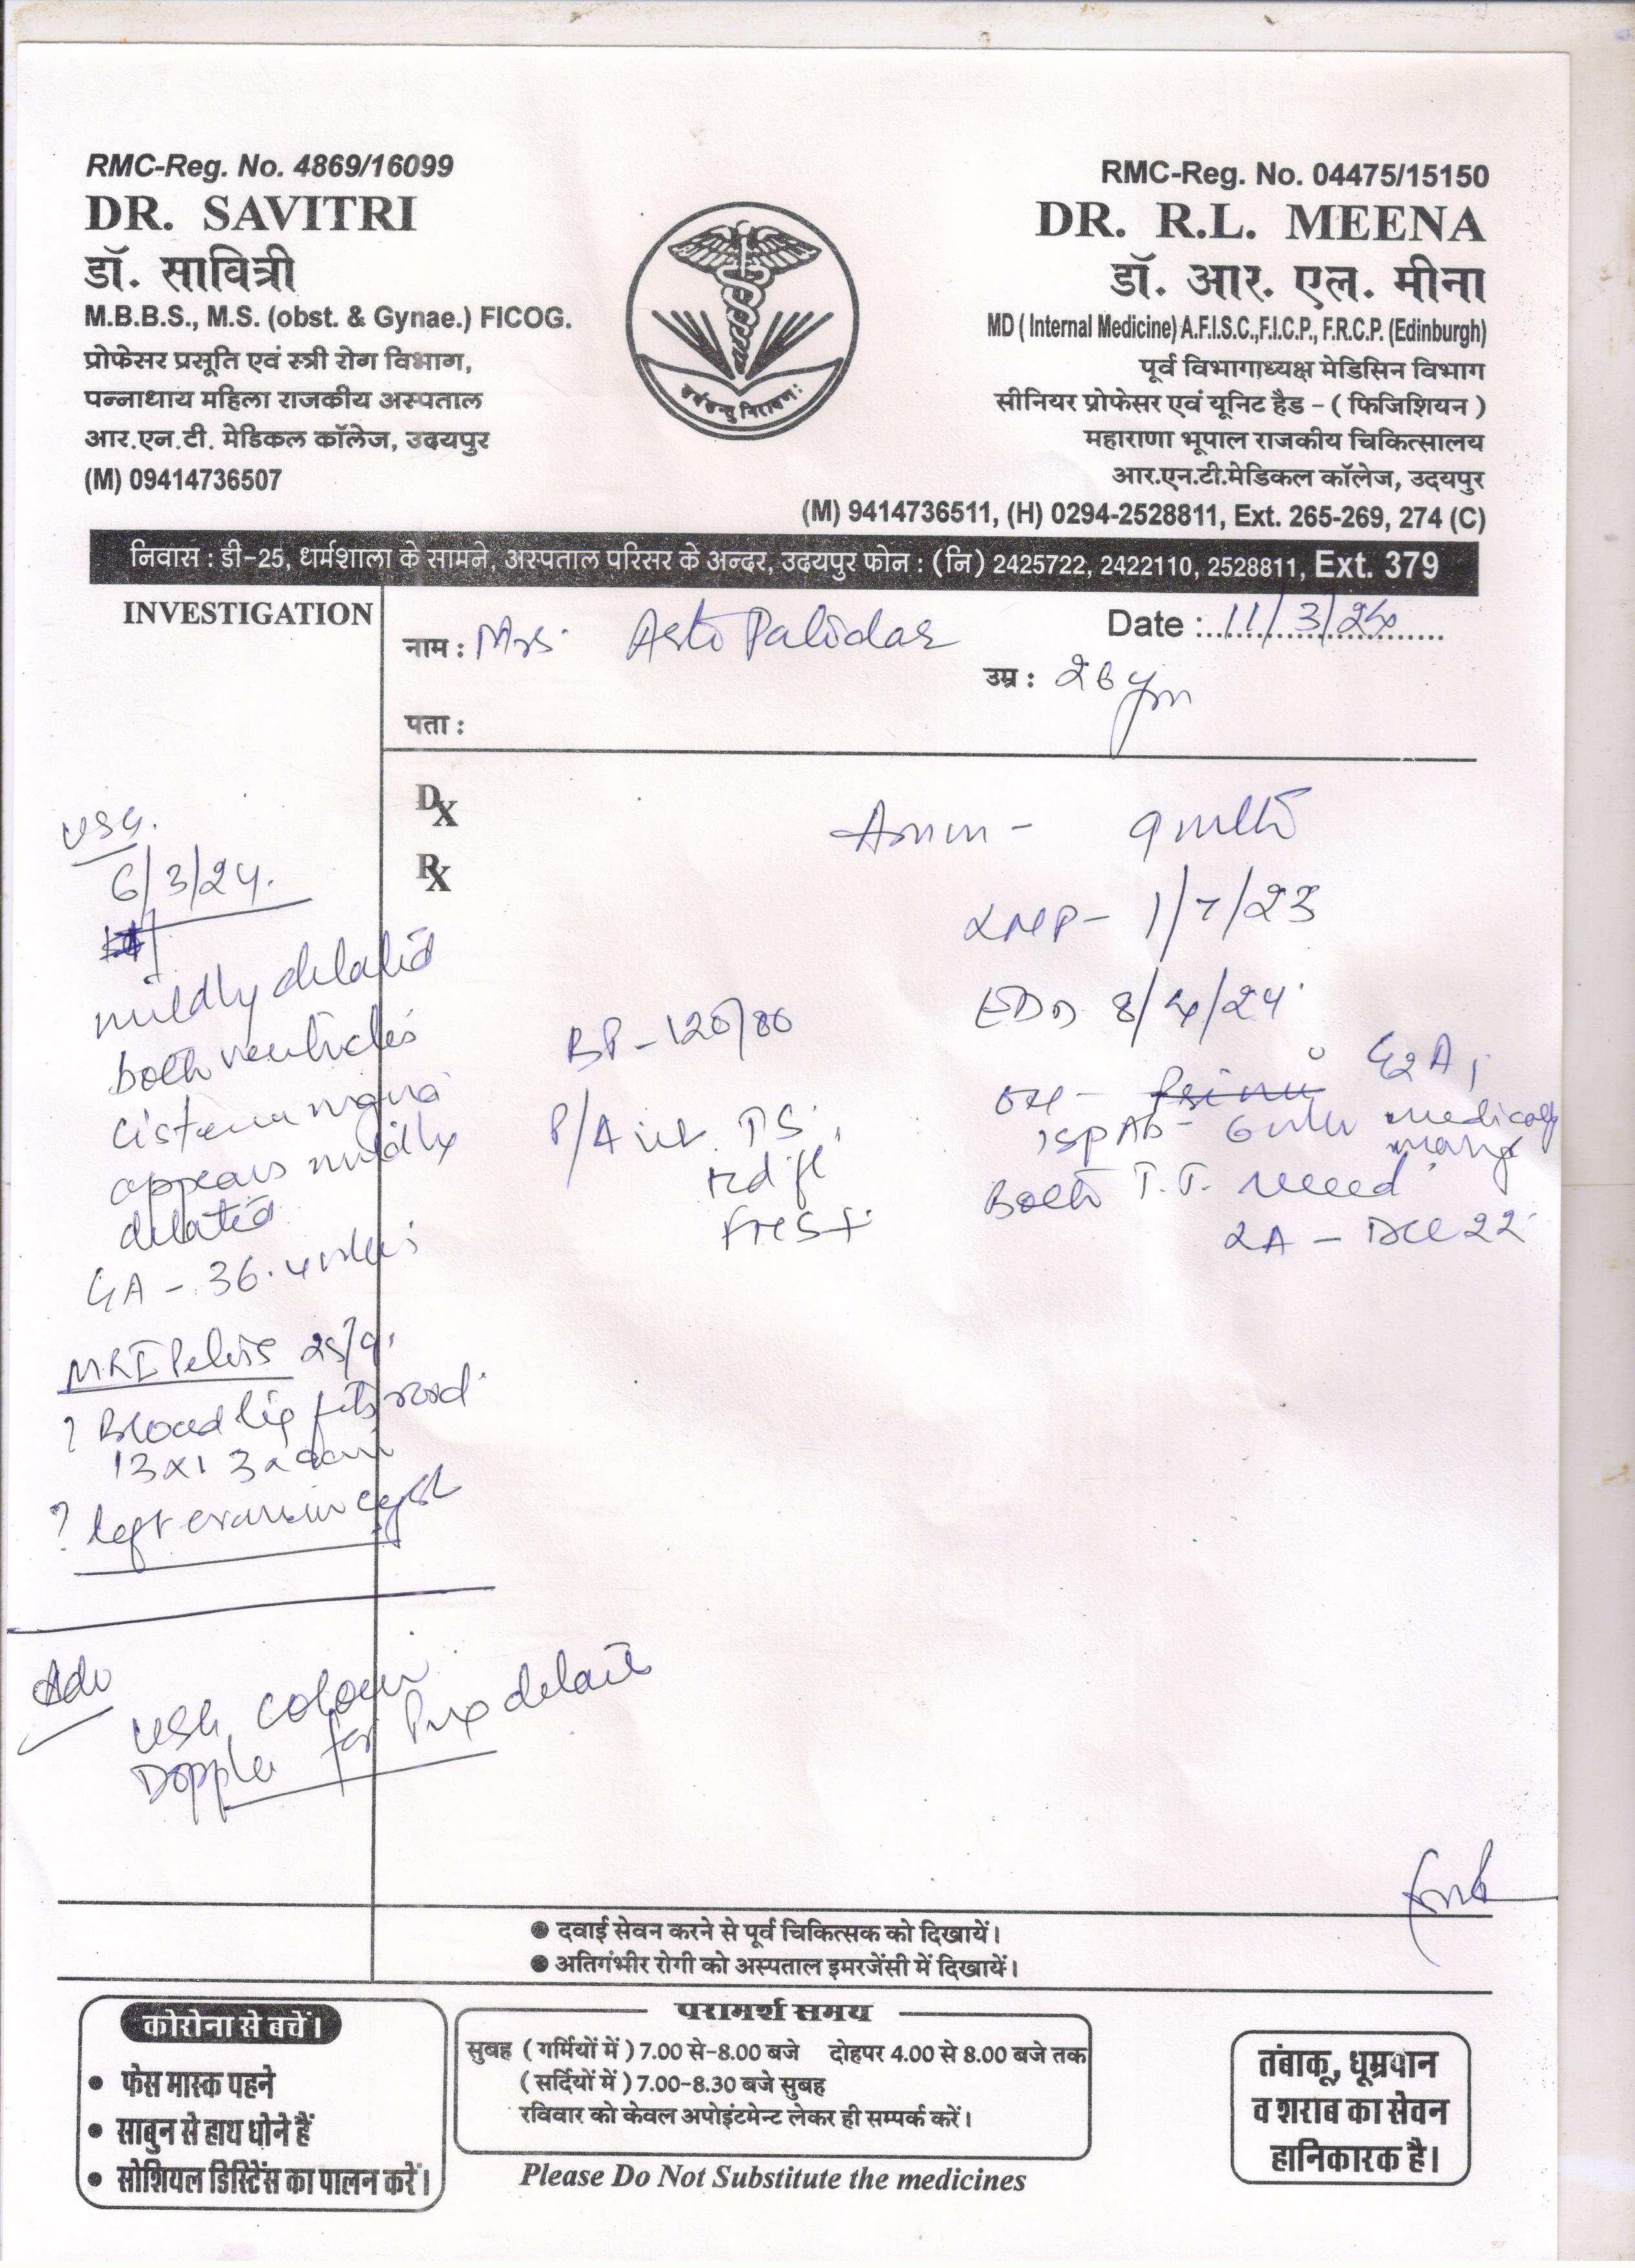 RMC-Reg. No. 4869/16099
DR. SAVITRI
डॉ. सावित्री
M.B.B.S., M.S. (obst. & Gynae.) FICOG.
प्रोफेसर प्रसूति एवं स्त्री रोग विभाग,
पन्नाधाय महिला राजकीय अस्पताल
आर.एन.टी. मेडिकल कॉलेज, उदयपुर
(M) 09414736507
RMC-Reg. No. 04475/15150
DR. R.L. MEENA
डॉ. आर. एल. मीना
MD ( Internal Medicine) A.F.I.S.C.,F.I.C.P., F.R.C.P. (Edinburgh)
पूर्व विभागाध्यक्ष मेडिसिन विभाग
सीनियर प्रोफेसर एवं यूनिट हैड - ( फिजिशियन )
महाराणा भूपाल राजकीय चिकित्सालय
आर.एन.टी.मेडिकल कॉलेज, उदयपुर
(M) 9414736511, (H) 0294-2528811, Ext. 265-269, 274 (C)
निवास : डी-25, धर्मशाला के सामने, अस्पताल परिसर के अन्दर, उदयपुर फोन : (नि) 2425722, 2422110, 2528811, Ext. 379
INVESTIGATION
नाम : Mrs. Palidar
Date : 11/3/24
उम्र : 26
पता :
DX
RX
9
LMP - 1/7/23
EDD 8/4/24
G2A1
BP - 120/80
P/A
Both T.T.
2A - Dec 22
USG.
6/3/24.
mildly dilated
both ventricles
cisterna magna
appears mildly
dilated
GA - 36.4 weeks
MRI Pelvis 25/9
? Broad lig
13x13x
? left ovarian cyst
Adv
USG colour
Doppler for
● दवाई सेवन करने से पूर्व चिकित्सक को दिखायें।
● अतिगंभीर रोगी को अस्पताल इमरजेंसी में दिखायें।
कोरोना से बचें।
• फेस मास्क पहने
• साबुन से हाथ धोने हैं
• सोशियल डिस्टिेंस का पालन करें।
परामर्श समय
सुबह ( गर्मियों में ) 7.00 से-8.00 बजे दोहपर 4.00 से 8.00 बजे तक
( सर्दियों में ) 7.00-8.30 बजे सुबह
रविवार को केवल अपोइंटमेन्ट लेकर ही सम्पर्क करें।
Please Do Not Substitute the medicines
तंबाकू, धूम्रपान
व शराब का सेवन
हानिकारक है।